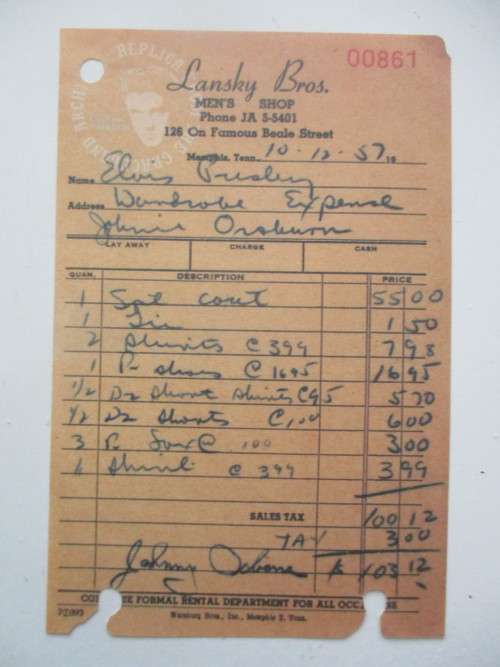 00861
REPLICA
Lansky Bros.
MEN'S SHOP
Phone JA 5-5401
126 On Famous Beale Street
Memphis, Tenn. 10-12-57 19
Name Elvis Presley
Address Wardrobe Expense
Johnie Orsburn
LAY AWAY CHARGE CASH
QUAN. DESCRIPTION PRICE
1 Spt coat 55 00
1 Tie 1 50
2 Shirts C 399 7 98
1 Pr shoes C 1695 16 95
1/2 Dz Short Shirts C 95 5 70
1/2 Dz Shorts C 1,00 6 00
3 Pr Sox C 1 00 3 00
1 C 399 3 99
SALES TAX 100 12
TAX 3.00
Johnny Osborne 103 12
FORMAL RENTAL DEPARTMENT FOR ALL
Bros., Inc., Memphis 2, Tenn.